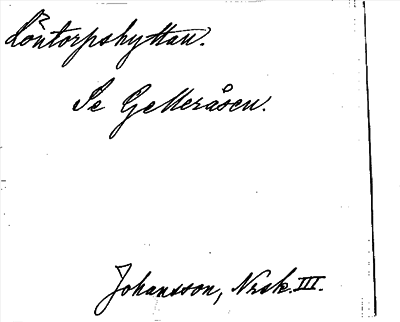 Löntorpshyttan.
Se Gelleråsen.
Johansson, Nrsk. III.